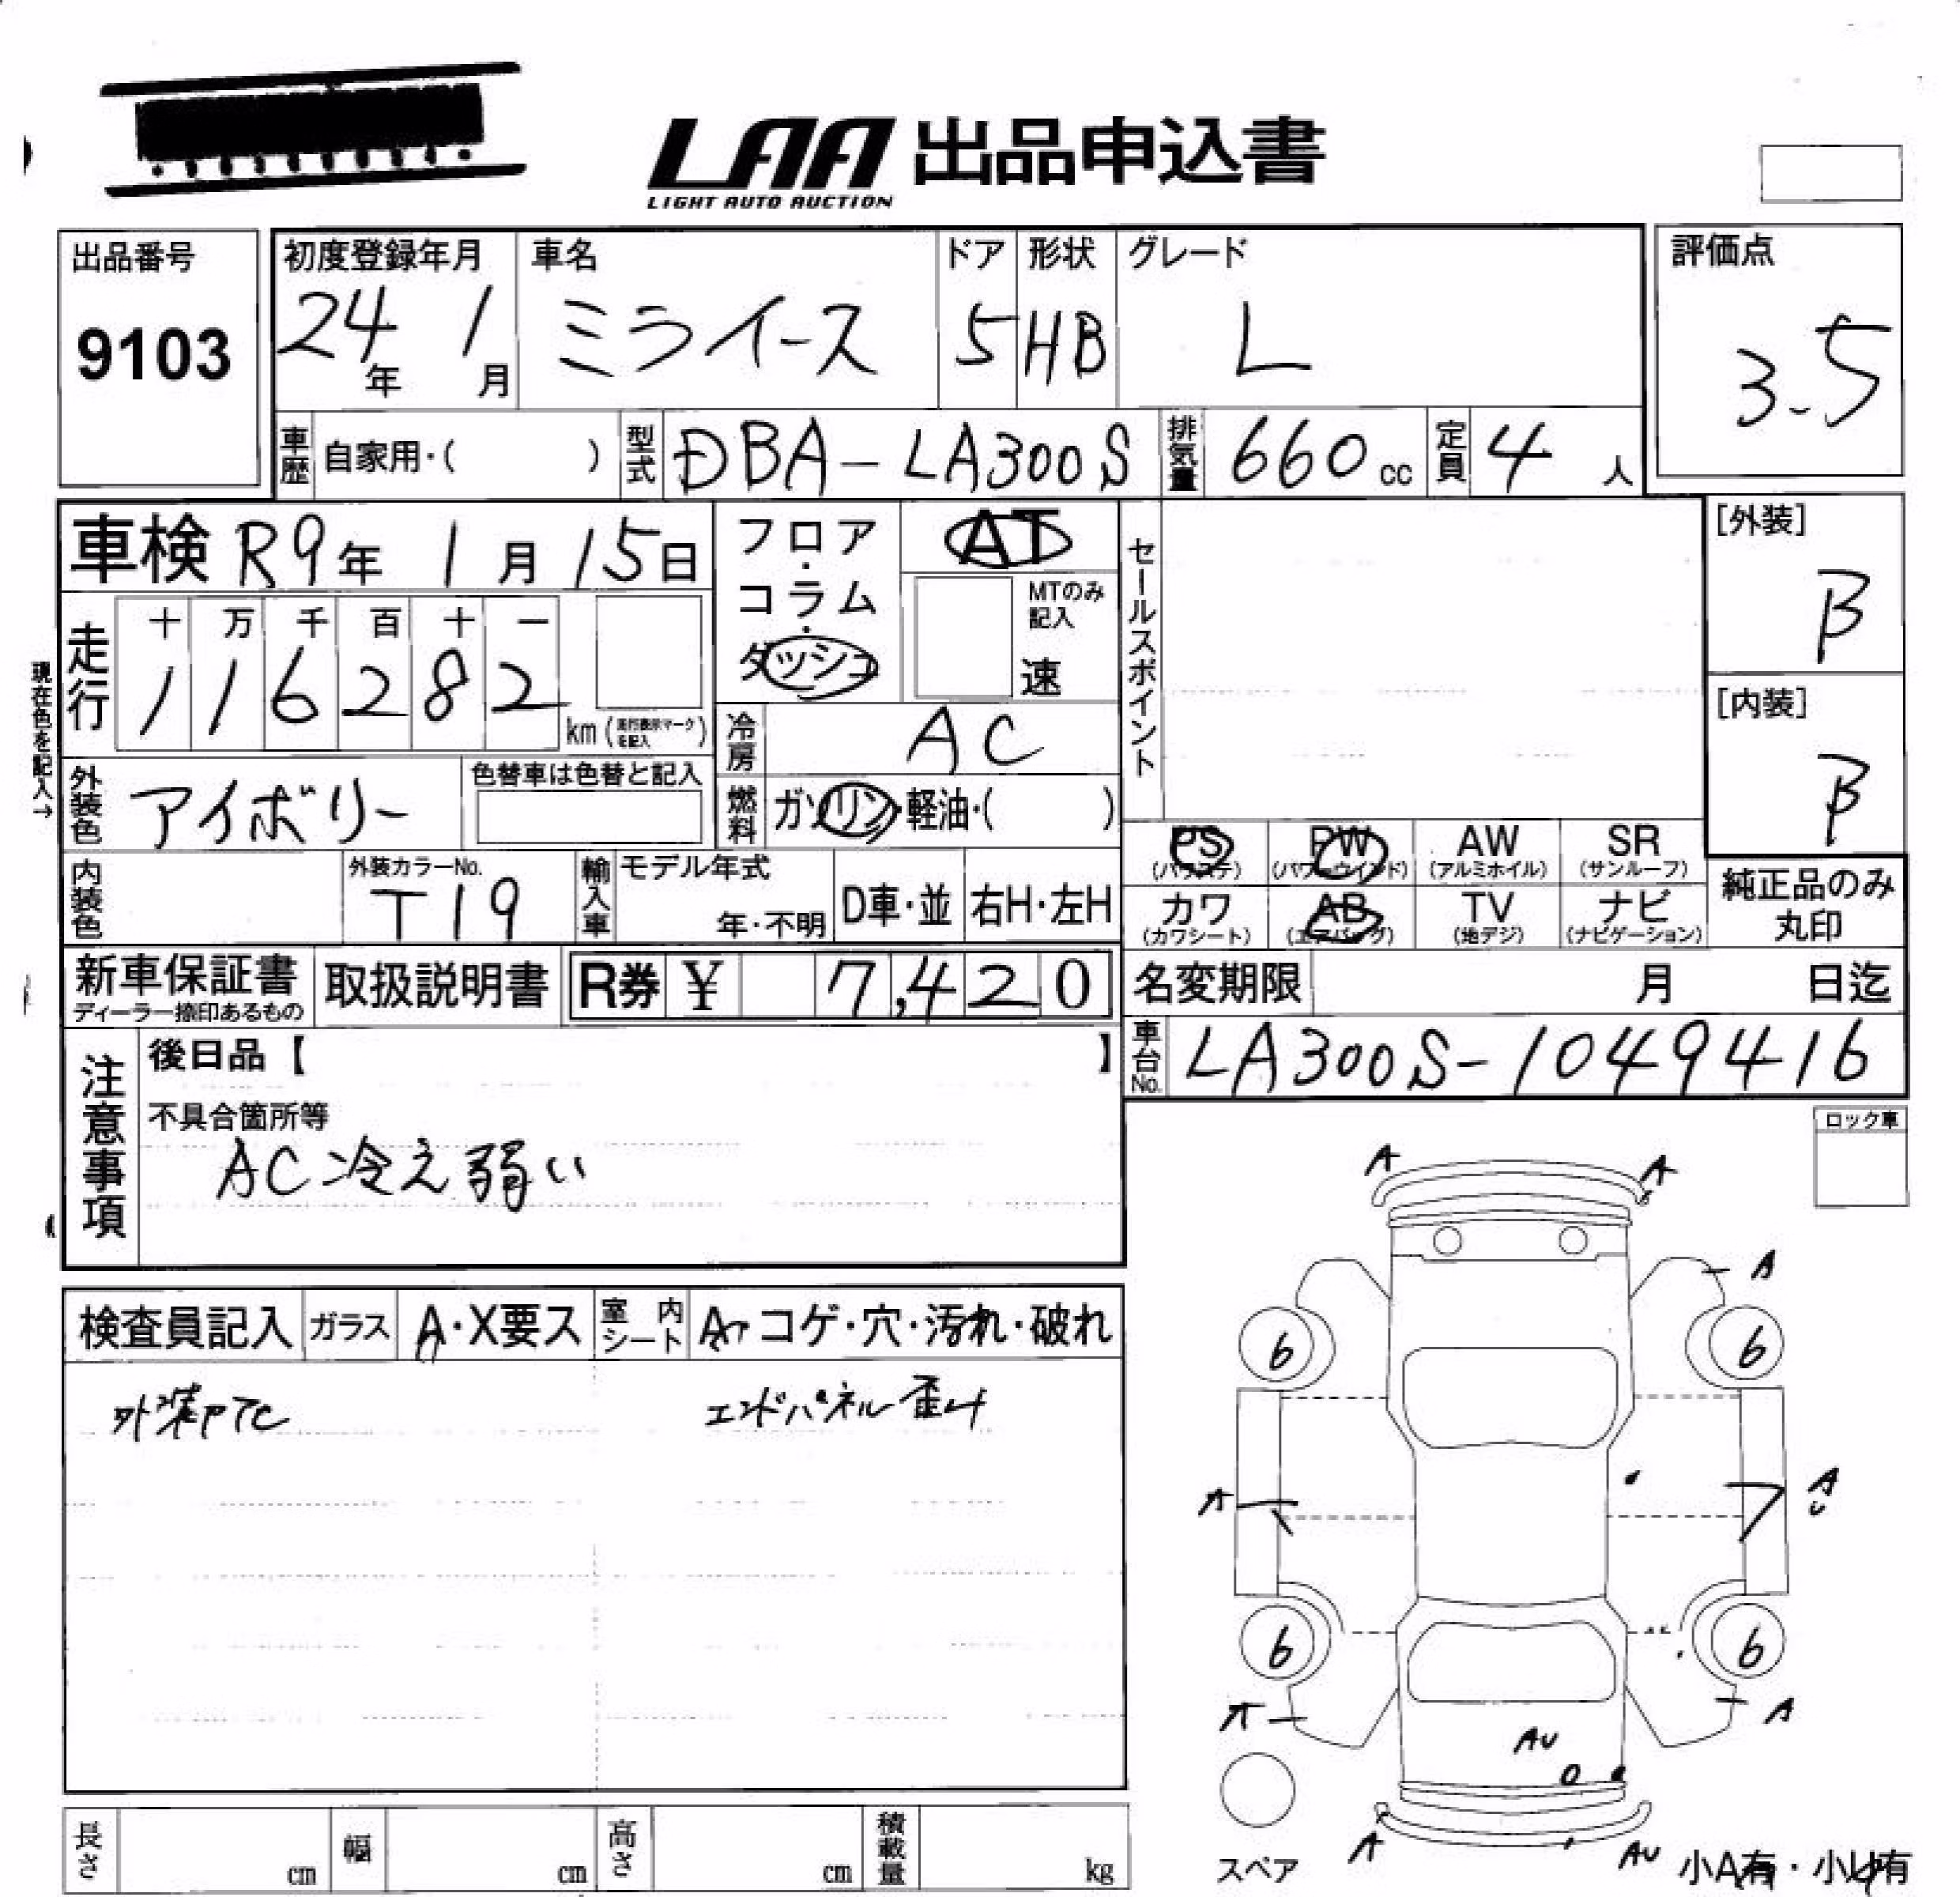 LAA 出品申込書
LIGHT AUTO AUCTION
出品番号
9103
初度登録年月
24年 1月
車名
ミライース
ドア
5
形状
HB
グレード
L
評価点
3.5
車歴 自家用・( )
型式 DBA-LA300S
排気量 660cc
定員 4人
車検 R9年 1月 15日
フロア・コラム・ダッシュ
AT
MTのみ記入
速
セールスポイント
[外装]
B
[内装]
B
現在色を記入→
走行
十 万 千 百 十 一
1 1 6 2 8 2
km(走行表示マークを記入)
冷房 AC
外装色 アイボリー
色替車は色替と記入
燃料 ガソリン・軽油・( )
PS (パワステ)
PW (パワーウインド)
AW (アルミホイル)
SR (サンルーフ)
カワ (カワシート)
AB (エアバッグ)
TV (地デジ)
ナビ (ナビゲーション)
純正品のみ丸印
内装色
外装カラーNo.
T19
輸入車
モデル年式
年・不明
D車・並
右H・左H
新車保証書
ディーラー捺印あるもの
取扱説明書
R券 ¥ 7,420
名変期限 月 日迄
車台No. LA300S-1049416
注意事項
後日品【 】
不具合箇所等
AC冷え弱い
ロック車
検査員記入
ガラス A・X要ス
室内シート
コゲ・穴・汚れ・破れ
エンドパネル歪み
A A
A
6 6
A A
U
6 6
A
AU
A AU
スペア
小A有・小U有
長さ cm
幅 cm
高さ cm
積載量 kg